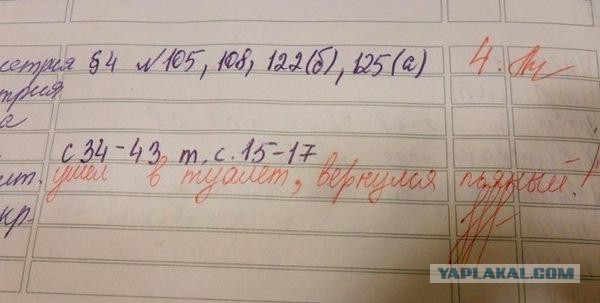 етрия §4 №105, 108, 122(б), 125(а) 4.
трия
а
с 34-43 т. с. 15-17
ит. ушел в туалет, вернулся пьяный!
кр.
YAPLAKAL.COM